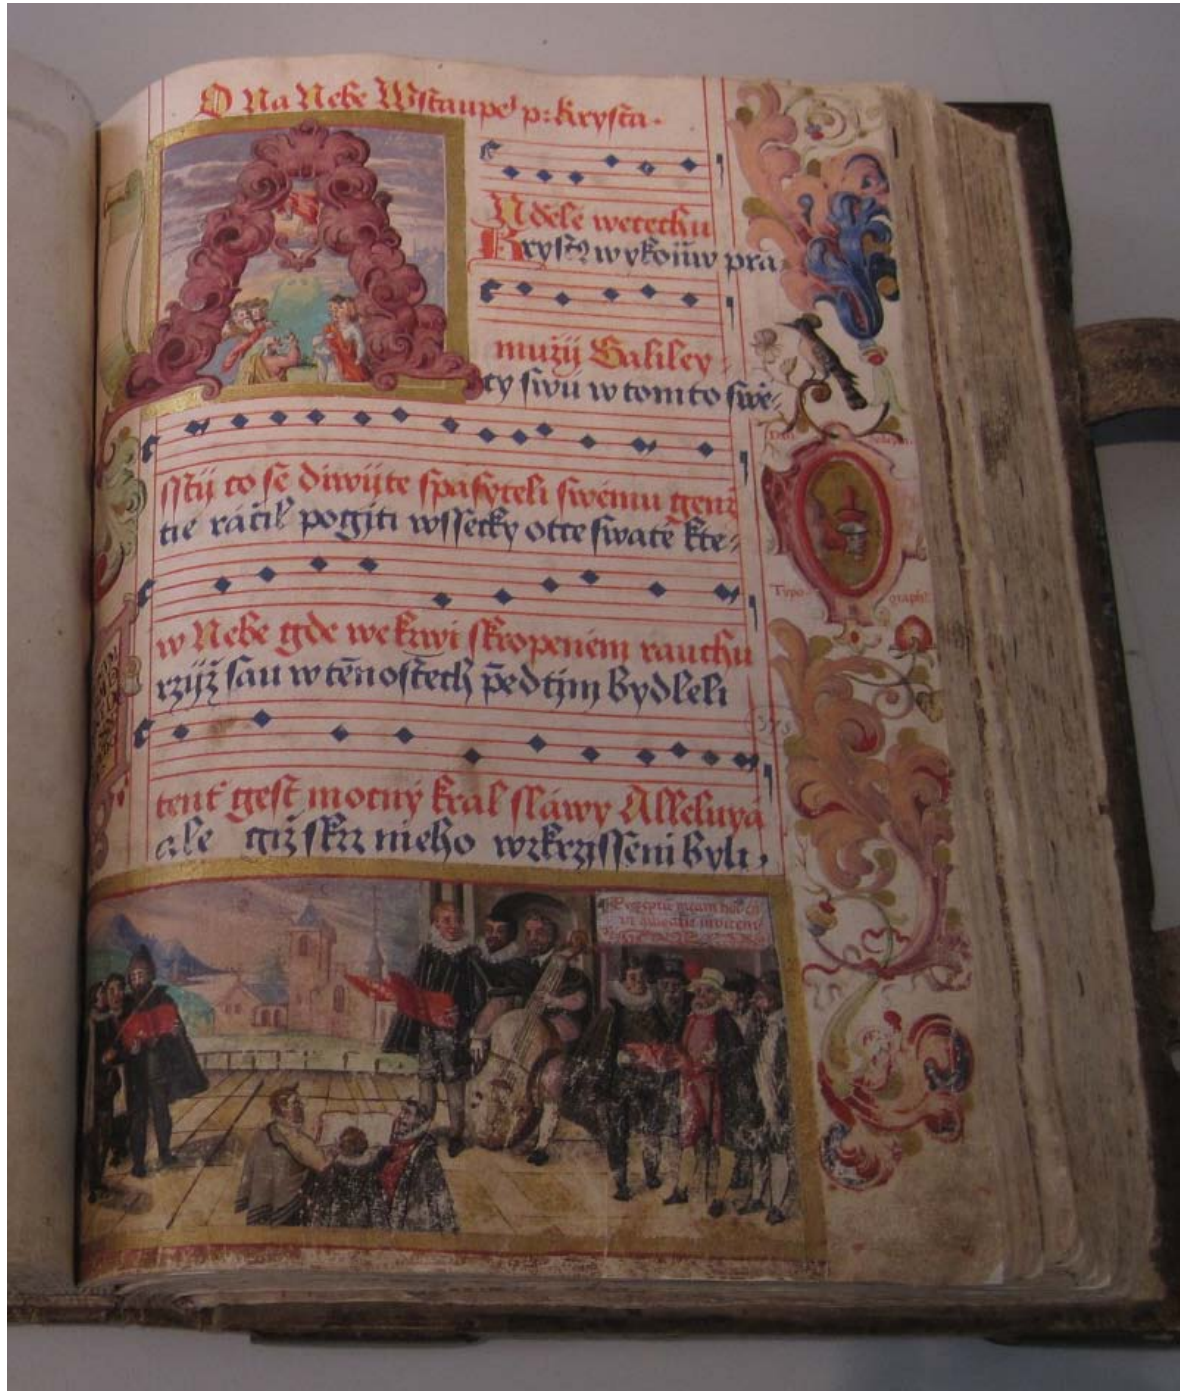 O Na Nebe Wstaupe p: Krysta.
Udele wetechu
Krystꝰ wykoűw pra
mužij Galiley
cy swu w tomto swě
sstij co se diwijte spasyteli swému genž
tie ráčil pogiti wssecky otce swaté kte
w Nebe gde we krwi skropeném rauchu
rzijž sau w těnostech předtijm bydleli
tenť gest mocný král sláwy Alleluya
ale giž skrz nieho wzkrzisseni byli,
Typo graph
373